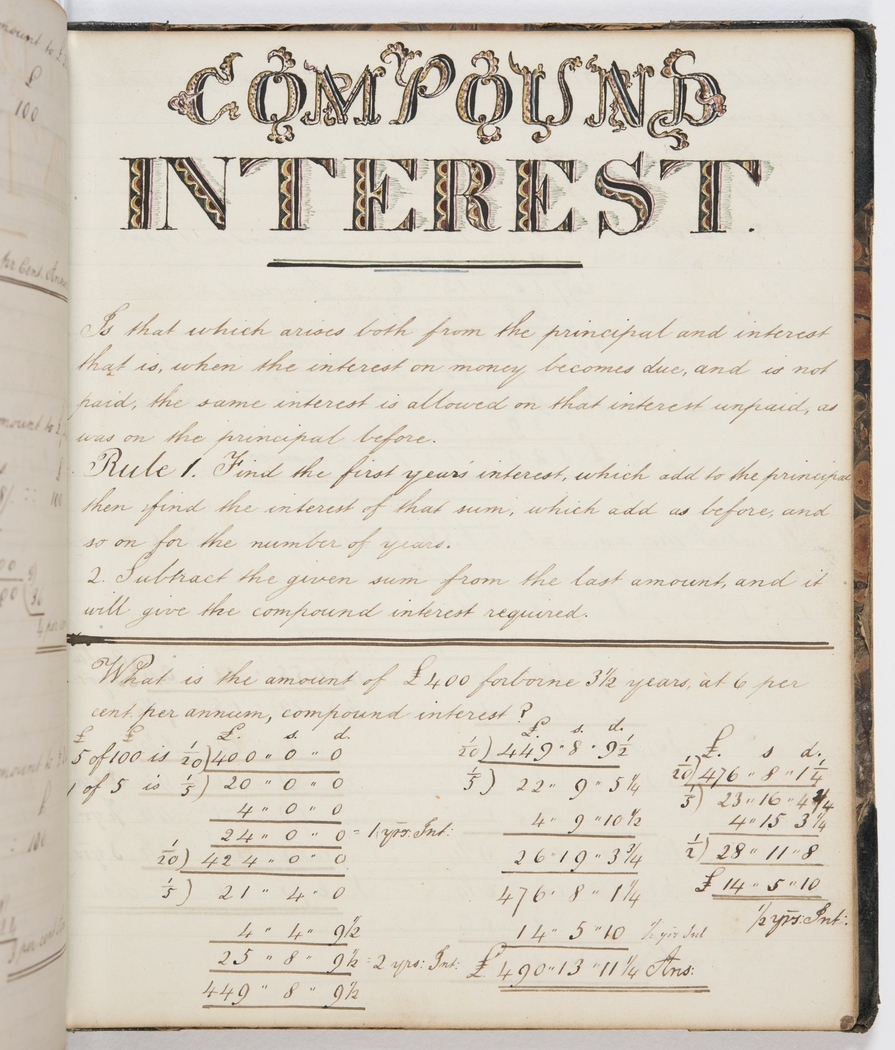 mount to £
£
100
per Cent. Ann
mount to £
£
8/ :: 100
4 per c
mount to £
£
:: 100
3 per cent
COMPOUND
INTEREST.
Is that which arises both from the principal and interest
that is, when the interest on money becomes due, and is not
paid, the same interest is allowed on that interest unpaid, as
was on the principal before.
Rule 1. Find the first year's interest, which add to the principal
then find the interest of that sum, which add as before, and
so on for the number of years.
2. Subtract the given sum from the last amount, and it
will give the compound interest required.
What is the amount of £400 forborne 3½ years, at 6 per
cent per annum, compound interest?
£ £ £. s. d.
5 of 100 is 1/20) 400 " 0 " 0
1 of 5 is 1/5) 20 " 0 " 0
4 " 0 " 0
24 " 0 " 0 = 1 yrs: Int:
1/20) 424 " 0 " 0
1/5) 21 " 4 " 0
4 " 4 " 9½
25 " 8 " 9½ = 2 yrs: Int:
449 " 8 " 9½
£. s. d.
1/20) 449 " 8 " 9½
1/5) 22 " 9 " 5¼
4 " 9 " 10½
26 " 19 " 3¾
476 " 8 " 1¼
14 " 5 " 10 ½ yrs Int
£ 490 " 13 " 11¼ Ans:
£. s d.
1/20) 476 " 8 " 1¼
1/5) 23 " 16 " 4¾
4 " 15 3¼
½) 28 " 11 " 8
£ 14 " 5 " 10
½ yrs: Int: